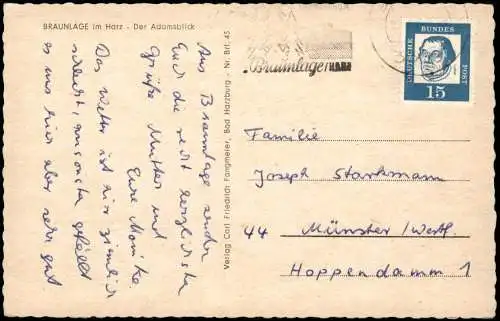 BRAUNLAGE im Harz - Der Adamsblick
Aus Braunlage senden
Euch die recht herzlichste
Grüße Mutter und
Eure Monika.
Das Wetter ist hier ziemlich
schlecht, ansonsten gefällt
es uns hier aber sehr gut
Verlag Carl Friedrich Fangmeier, Bad Harzburg - Nr. Brl. 45
Braunlage HARZ
DEUTSCHE
BUNDES
POST
15
Familie
Joseph Starkmann
44 Münster/Westf.
Hoppendamm 1